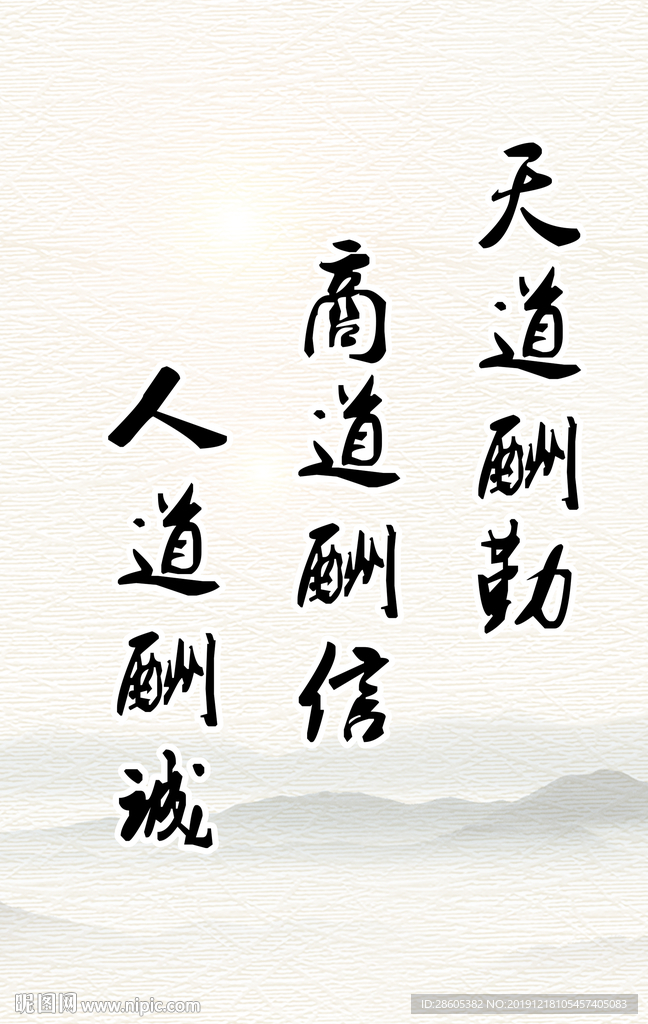 天道酬勤
商道酬信
人道酬诚
昵图网 www.nipic.com
ID:28605382 NO:20191218105457405083